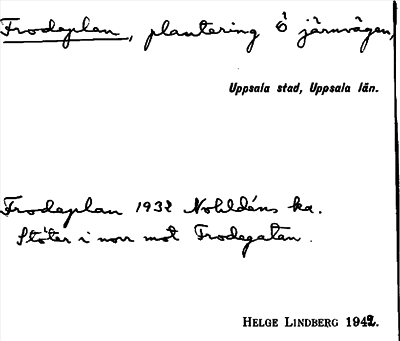 Frodeplan, plantering ö järnvägen,
Uppsala stad, Uppsala län.
Frodeplan 1932 Nohldéns ka.
Stöter i norr mot Frodegatan.
HELGE LINDBERG 1942.